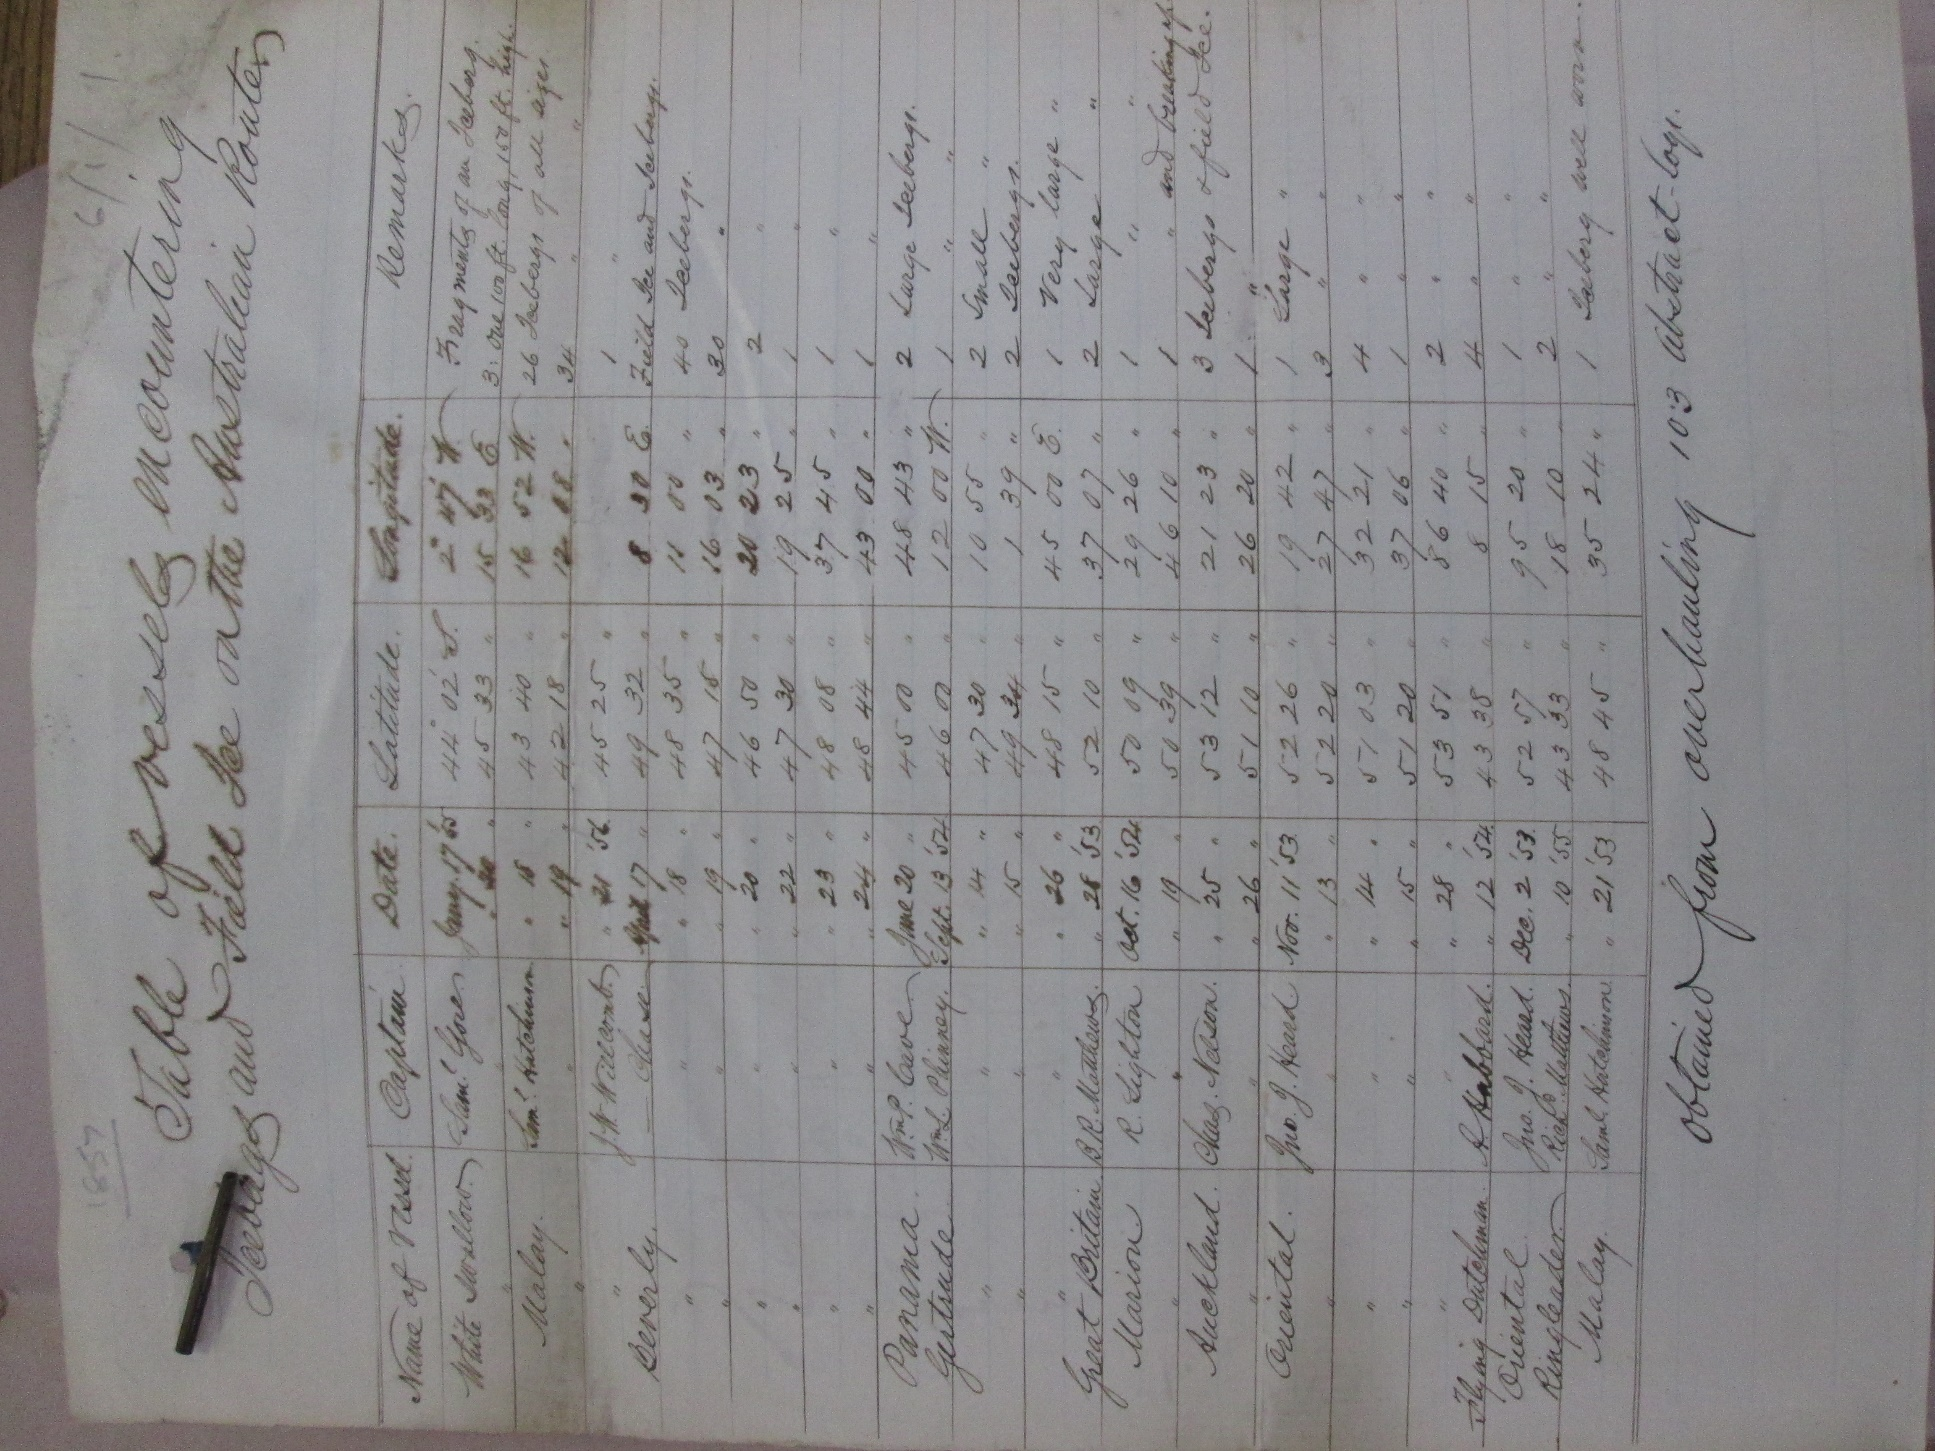 1857
6/1/1.
Table of vessels encountering
Icebergs and Field Ice on the Australian Routes
Name of Vessel. Captain. Date. Latitude. Longitude. Remarks.
White Swallow. Saml. Gove Jany. 17 '55 44° 02' S. 2° 47' W. Fragments of an Iceberg.
" " " 20 " 45 33 " 15 33 E 3: One 100 ft. long, 150 ft. high.
Malay. Saml. Hutchinson " 18 " 43 40 " 16 52 W. 26 Icebergs of all sizes
" " " 19 " 42 18 " 12 08 " 34 " "
" J. W. Willcomb. " 21 '56 45 25 " 1 "
Beverly. — Chase. April 17 " 49 32 " 8 30 E. Field Ice and Icebergs.
" " " 18 " 48 35 " 11 00 " 40 Icebergs.
" " " 19 " 47 15 " 16 03 " 30 "
" " " 20 " 46 50 " 20 23 " 2 "
" " " 22 " 47 30 " 19 25 " 1 "
" " " 23 " 48 08 " 37 45 " 1 "
" " " 24 " 48 44 " 43 00 " 1 "
Panama. Wm. P. Cave June 20 " 45 00 " 48 43 " 2 Large Icebergs.
Gertrude. Wm. L. Phinney. Sept. 13 '54 46 00 " 12 00 W. 1 " "
" " " 14 " 47 30 " 10 55 " 2 Small "
" " " 15 " 49 34 " 1 39 " 2 Icebergs.
" " " 26 " 48 15 " 45 00 E. 1 Very large "
Great Britain B. R. Matthews. " 28 '53 52 10 " 37 07 " 2 Large "
Marion R. Lighton Oct. 16 '54 50 09 " 29 26 " 1 " "
" " " 19 " 50 39 " 46 10 " 1 " and breaking up.
Auckland. Chas. Nelson. " 25 " 53 12 " 21 23 " 3 Icebergs & field Ice.
" " " 26 " 51 10 " 26 20 " 1 "
Oriental. Jno. J. Heard Nov. 11 '53 52 26 " 19 42 " 1 Large "
" " " 13 " 52 20 " 27 47 " 3 " "
" " " 14 " 51 03 " 32 21 " 4 " "
" " " 15 " 51 20 " 37 06 " 1 " "
" " " 28 " 53 51 " 86 40 " 2 " "
Flying Dutchman. A Hubbard. " 12 '54 43 38 " 8 15 " 4 " "
Oriental Jno. J. Heard. Dec. 2 '53 52 57 " 95 20 " 1 " "
Ringleader Richd. Matthews. " 10 '55 43 33 " 18 10 " 2 " "
Malay. Saml. Hutchinson. " 21 '53 48 45 " 35 24 " 1 Iceberg well worn.
Obtained from overhauling 103 Abstract-logs.